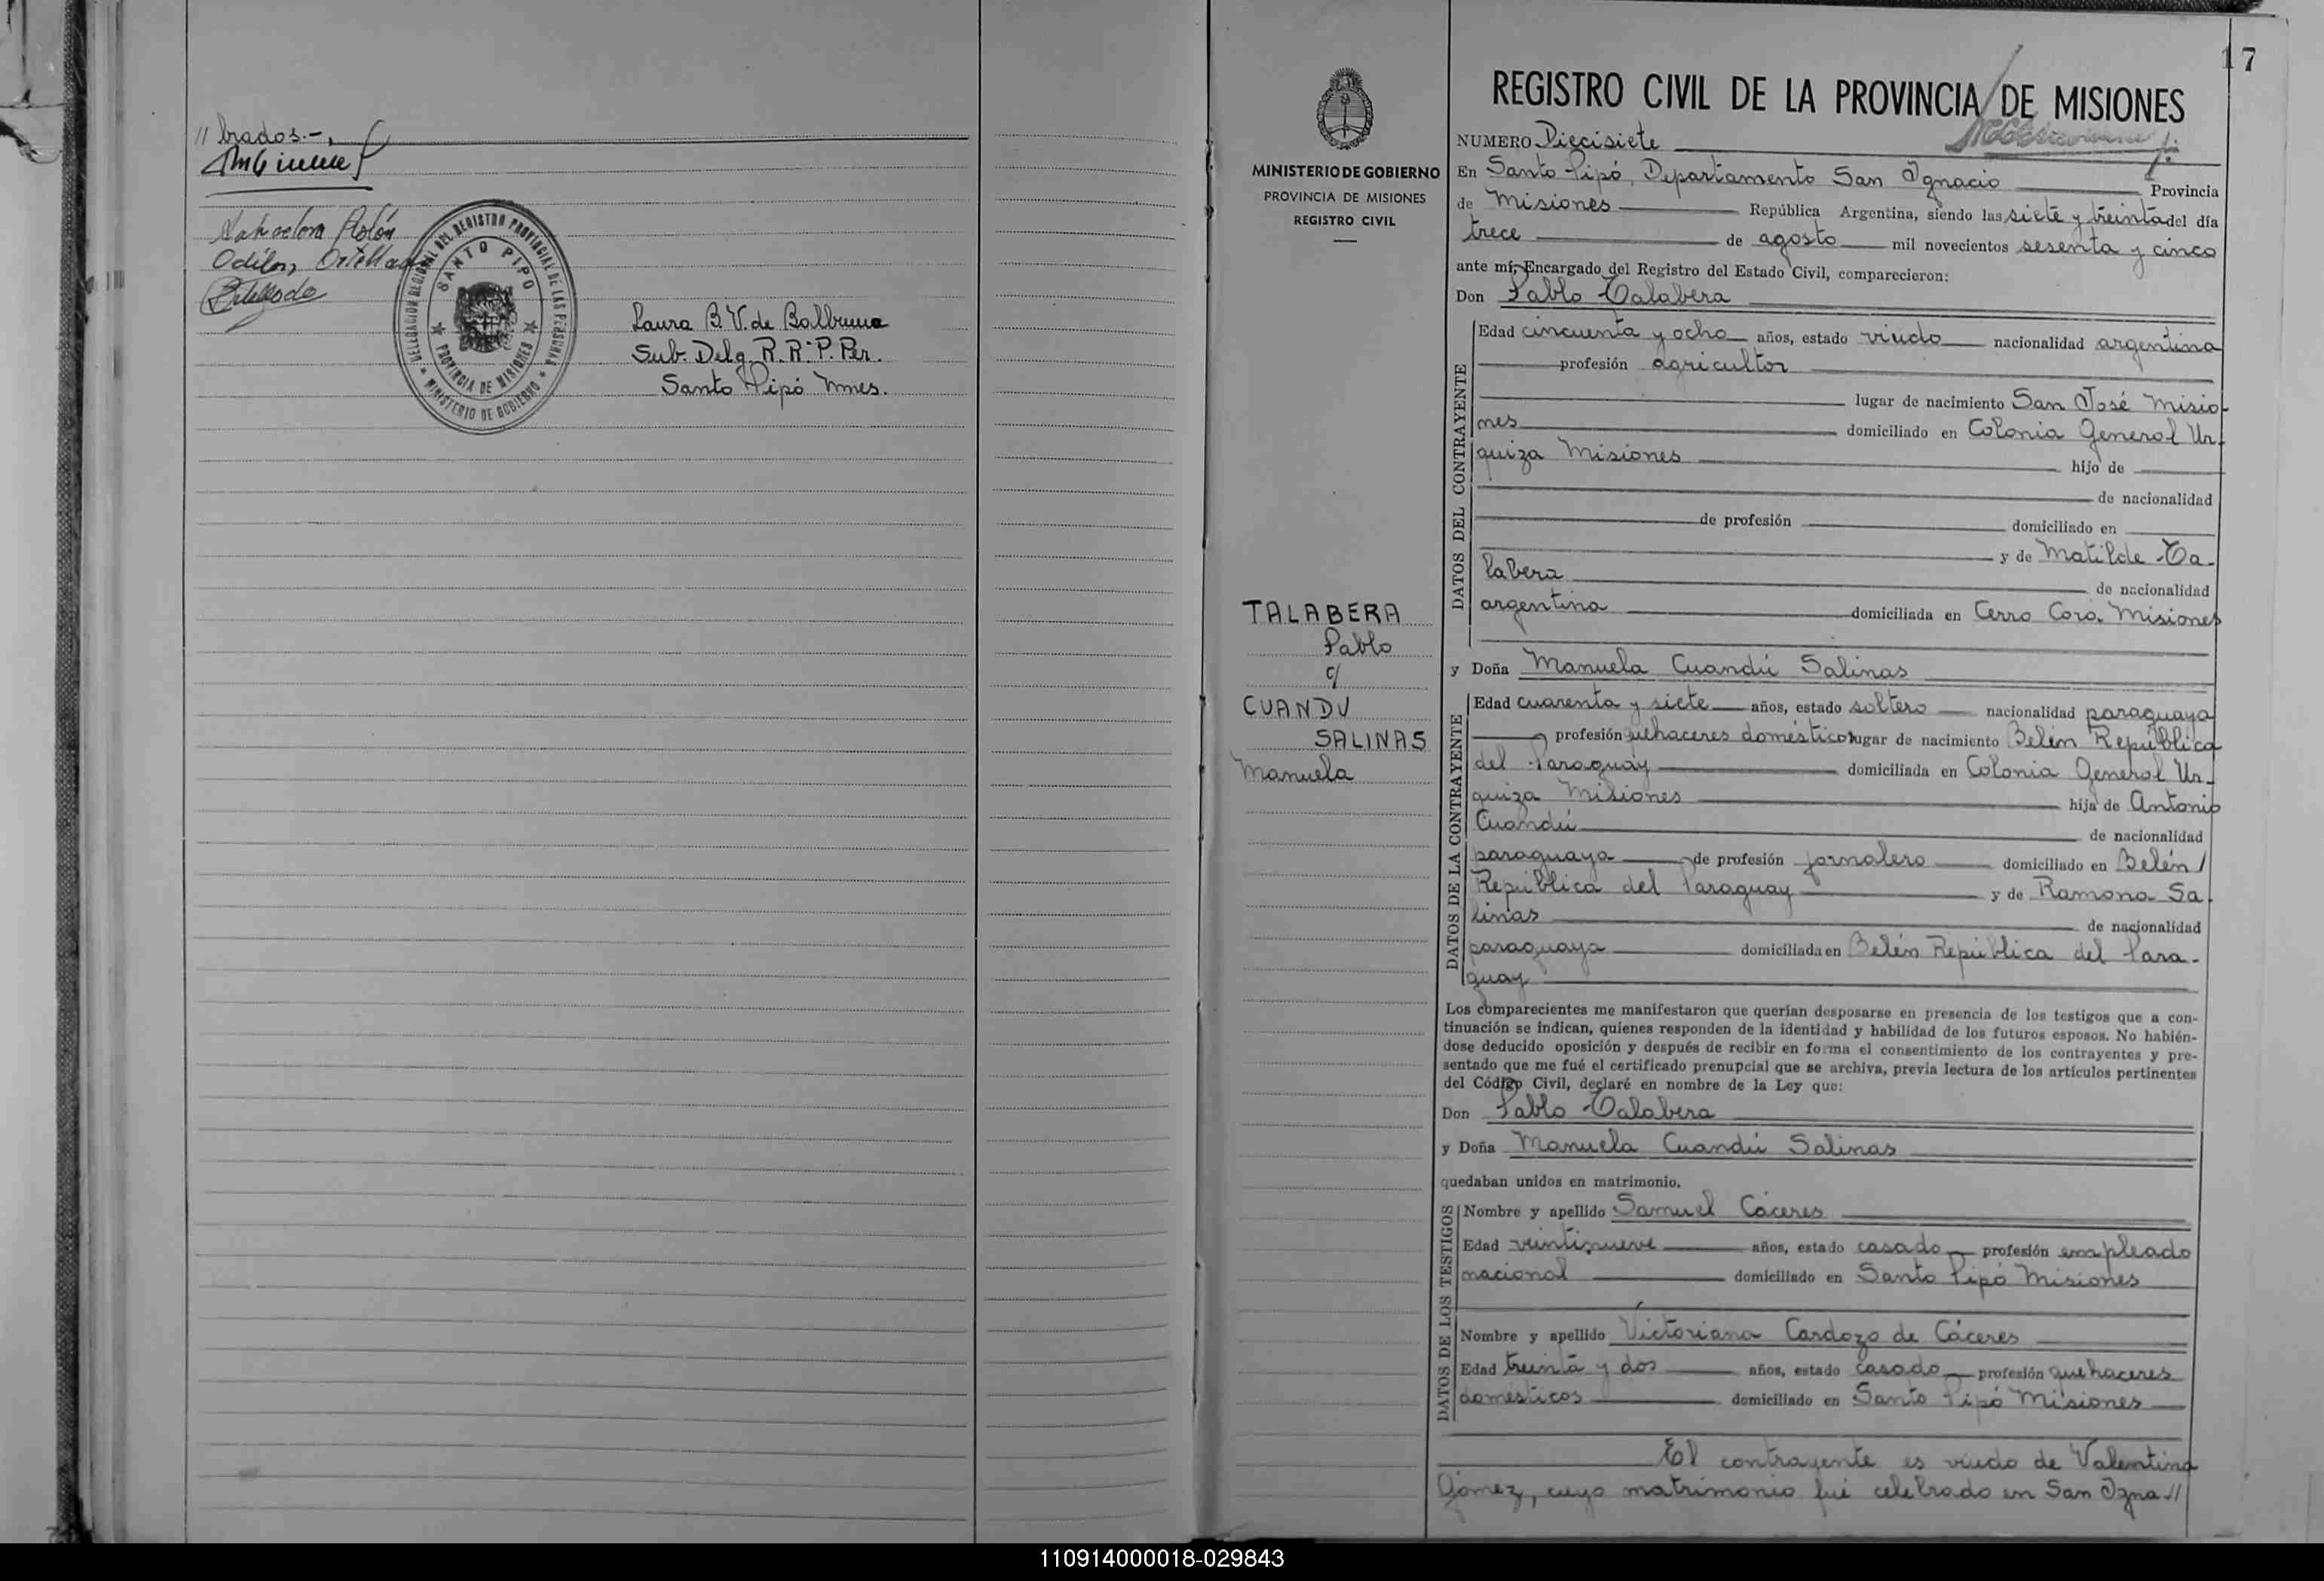 // brados.-
Odilon
DELEGACION REGIONAL DEL REGISTRO PROVINCIAL DE LAS PERSONAS
SANTO PIPO
PROVINCIA DE MISIONES
MINISTERIO DE GOBIERNO
Laura B. V. de Balbuena
Sub. Delg. R. R. P. Per.
Santo Pipó Mnes.
17
MINISTERIO DE GOBIERNO
PROVINCIA DE MISIONES
REGISTRO CIVIL
TALABERA
Pablo
c/
CUANDU
SALINAS
Manuela
REGISTRO CIVIL DE LA PROVINCIA DE MISIONES
NUMERO Diecisiete
En Santo Pipó, Departamento San Ignacio Provincia
de Misiones República Argentina, siendo las siete y treinta del día
trece de agosto mil novecientos sesenta y cinco
ante mí, Encargado del Registro del Estado Civil, comparecieron:
Don Pablo Talabera
DATOS DEL CONTRAYENTE
Edad cincuenta y ocho años, estado viudo nacionalidad argentina
profesión agricultor
lugar de nacimiento San José Misio-
nes domiciliado en Colonia General Ur-
quiza Misiones hijo de
de nacionalidad
de profesión domiciliado en
y de Matilde Ta-
labera de nacionalidad
argentina domiciliada en Cerro Corá Misiones
y Doña Manuela Cuandú Salinas
DATOS DE LA CONTRAYENTE
Edad cuarenta y siete años, estado soltero nacionalidad paraguaya
profesión quehaceres domésticos lugar de nacimiento Belén República
del Paraguay domiciliada en Colonia General Ur-
quiza Misiones hija de Antonio
Cuandú de nacionalidad
paraguaya de profesión jornalero domiciliado en Belén/
República del Paraguay y de Ramona Sa-
linas de nacionalidad
paraguaya domiciliada en Belén República del Para-
guay
Los comparecientes me manifestaron que querían desposarse en presencia de los testigos que a con-
tinuación se indican, quienes responden de la identidad y habilidad de los futuros esposos. No habién-
dose deducido oposición y después de recibir en forma el consentimiento de los contrayentes y pre-
sentado que me fué el certificado prenupcial que se archiva, previa lectura de los artículos pertinentes
del Código Civil, declaré en nombre de la Ley que:
Don Pablo Talabera
y Doña Manuela Cuandú Salinas
quedaban unidos en matrimonio.
DATOS DE LOS TESTIGOS
Nombre y apellido Samuel Cáceres
Edad veintinueve años, estado casado profesión empleado
nacional domiciliado en Santo Pipó Misiones
Nombre y apellido Victoriana Cardozo de Cáceres
Edad treinta y dos años, estado casado profesión quehaceres
domesticos domiciliado en Santo Pipó Misiones
El contrayente es viudo de Valentina
Gómez, cuyo matrimonio fué celebrado en San Igna//
110914000018-029843